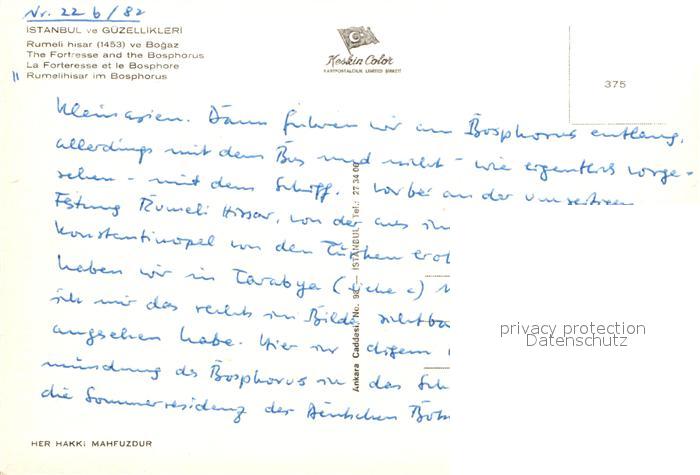 Nr. 22 b/82
İSTANBUL ve GÜZELLİKLERİ
Rumeli hisar (1453) ve Boğaz
The Fortresse and the Bosphorus
La Forteresse et le Bosphore
" Rumelihisar im Bosphorus
Keskin Color
KARTPOSTALCILIK LIMITED ŞİRKETİ
375
Kleinasien. Dann fuhren wir am Bosphorus entlang,
allerdings mit dem Bus und nicht - wie eigentlich vorge-
sehen - mit dem Schiff. Vorbei an der
Festung Rumeli Hissar, von der aus
Konstantinopel von den Türken erob
haben wir in Tarabya (siehe c)
ich mir das rechts im Bilde sichtba
angesehen habe. Hier in
mündung des Bosphorus in das Sch
die Sommerresidenz der Deutschen Bots
Ankara Caddesi, No. 98 — İSTANBUL Tel.: 27 34 00
privacy protection
Datenschutz
HER HAKKI MAHFUZDUR